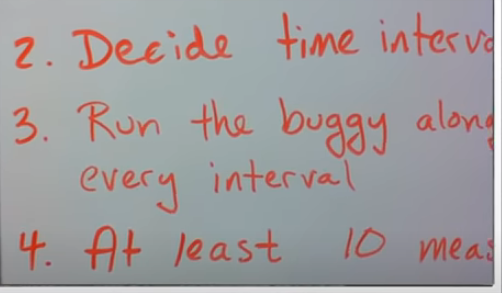 2. Decide time interva
3. Run the buggy along
every interval
4. At least 10 meas